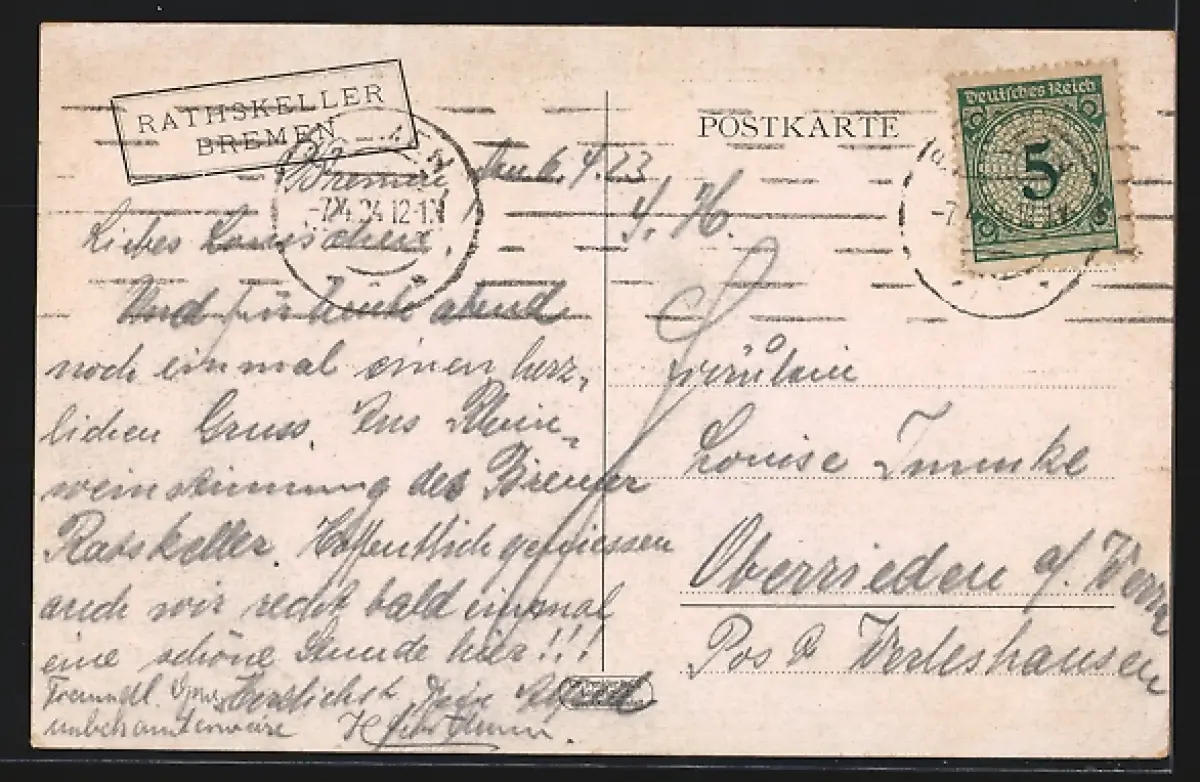 RATHSKELLER
BREMEN
Bremen den 6.4.23
-7.4.24 12-1N
Liebes Louischen,
Und für heute abend
noch einmal einen herz-
lichen Gruss. Ins Rhein-
weinstimmung des Bremer
Ratskeller. Hoffentlich geniessen
auch wir recht bald einmal
eine schöne Stunde hier!!!
Freundl. Herzlichst Dein Alfred
unbekannterweise
POSTKARTE
Deutsches Reich
5
Fräulein
Louise
Oberrieden a/ Werra
Post Werleshausen